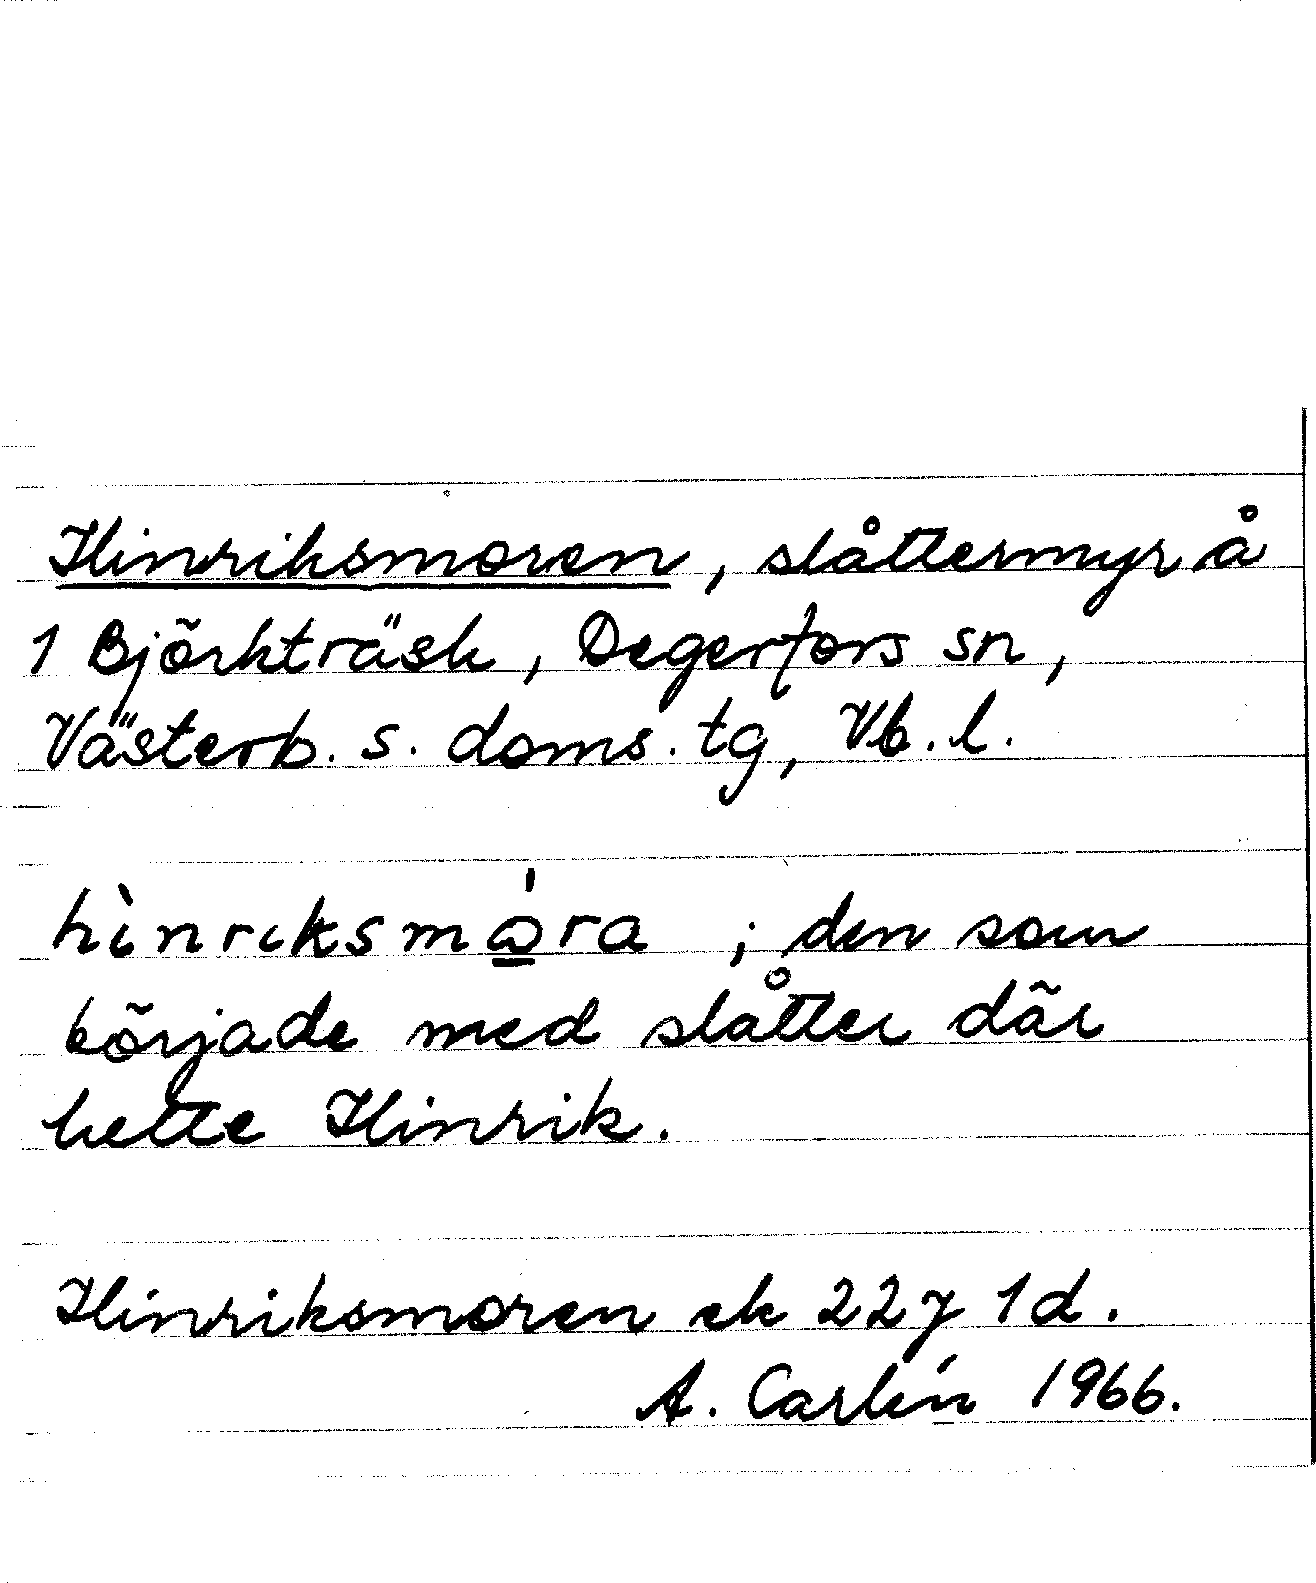 Hinriksmoren, slåttermyr å
1 Björkträsk, Degerfors sn,
Västerb. s. doms. tg, Vb. l.
hìnrɩksmώ̲ra ; den som
började med slåtter där
hette Hinrik.
Hinriksmoren ek 22 7 1d.
A. Carlén 1966.